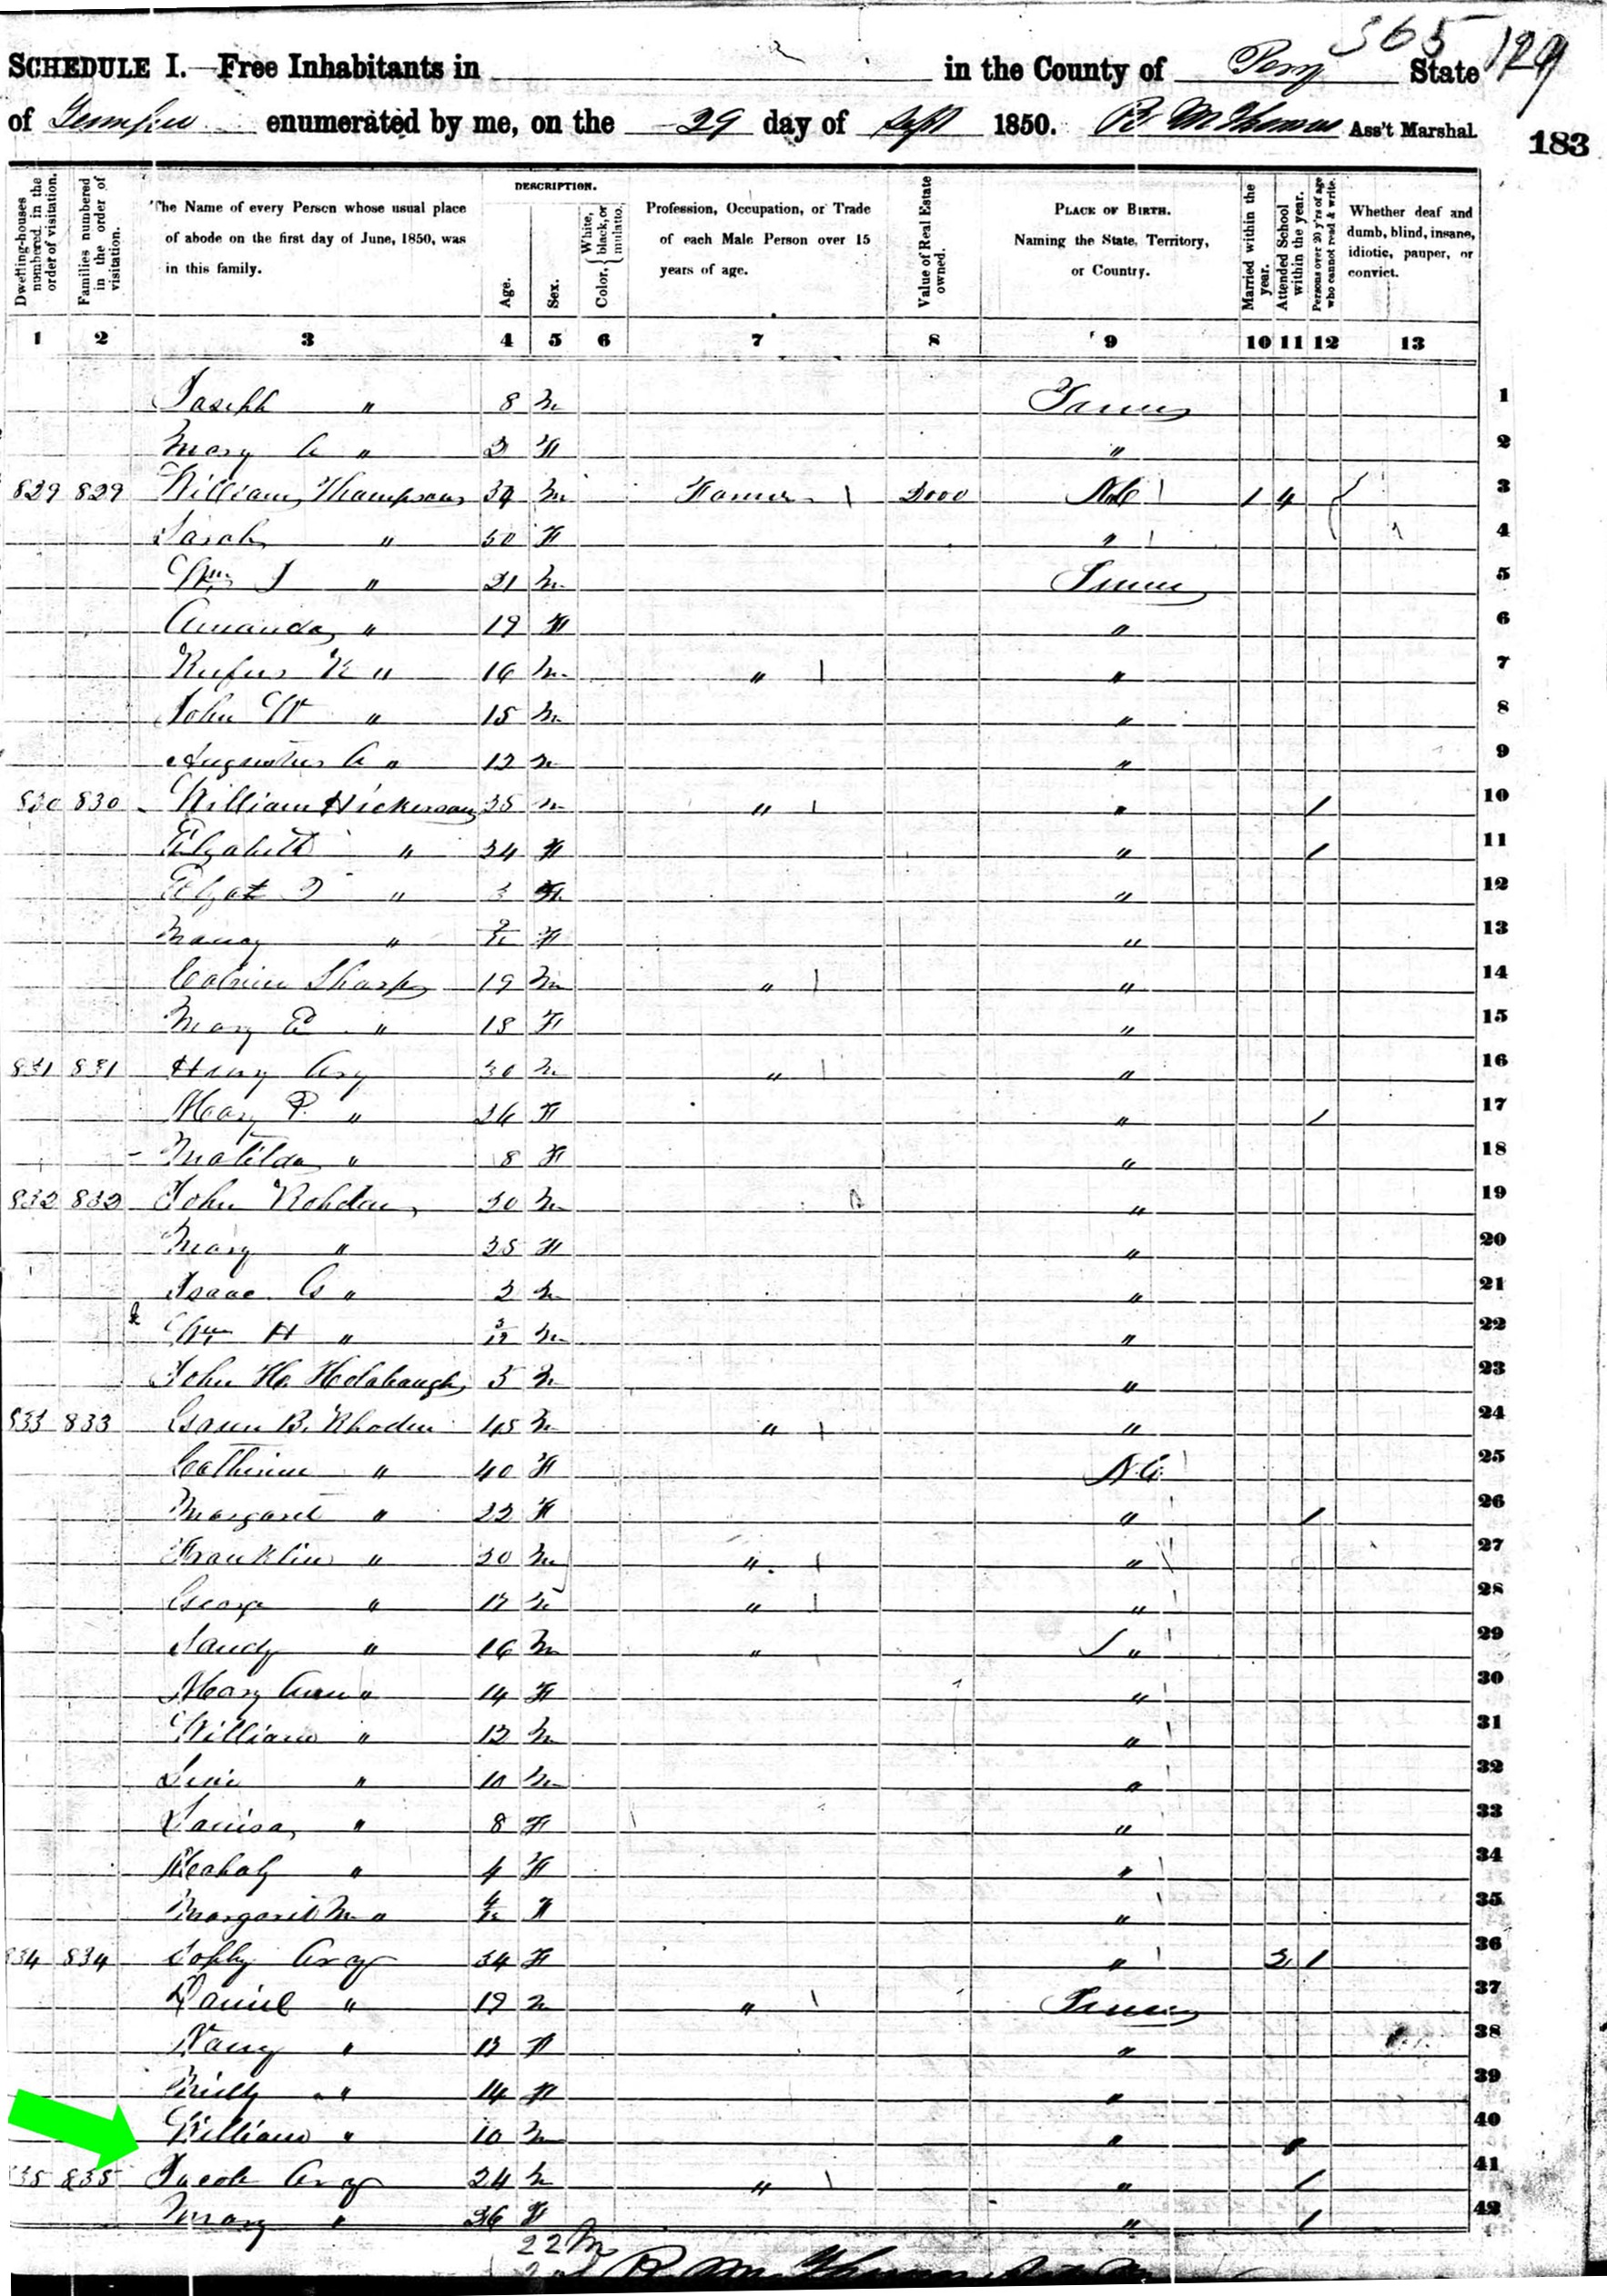 365 129
SCHEDULE I. Free Inhabitants in in the County of Perry State
of Tennessee enumerated by me, on the 29 day of Sept 1850. R M Thomas Ass't Marshal.
183
Dwelling-houses numbered in the order of visitation.
Families numbered in the order of visitation.
The Name of every Person whose usual place of abode on the first day of June, 1850, was in this family.
DESCRIPTION.
Age.
Sex.
Color, White, black, or mulatto.
Profession, Occupation, or Trade of each Male Person over 15 years of age.
Value of Real Estate owned.
PLACE OF BIRTH. Naming the State, Territory, or Country.
Married within the year.
Attended School within the year.
Persons over 20 y'rs of age who cannot read & write.
Whether deaf and dumb, blind, insane, idiotic, pauper, or convict.
1 2 3 4 5 6 7 8 9 10 11 12 13
Joseph " 8 M 1
Mary A " F " 2
829 829 William Thompson M Farmer N.C 1 4 3
Sarah " 50 F " 4
Wm J " 21 M 5
Amanda " 19 F " 6
Rufus K " 16 M " " 7
John W " 15 M " 8
Augustus A " 12 M " 9
830 830 William Hickerson 35 M " " / 10
Elizabeth " F " / 11
" 3 F " 12
Nancy " F " 13
Sharp 19 M " " 14
Mary E " 18 F " 15
831 831 Henry Ary 30 M " " 16
Mary P. " F " / 17
Matilda " 8 F " 18
832 832 John Rohden 30 M " 19
Mary " F " 20
Isaac G " M " 21
Wm H " 3/12 M " 22
John H. Holabaugh 5 M " 23
833 833 B. Rhoden 45 M " " 24
Catherine " 40 F N.C. 25
Margaret " 22 F " / 26
Franklin " 20 M " " 27
George " M " " 28
Sandy " 16 M " " 29
Mary Ann " 14 F " 30
William " 12 M " 31
Levi " 10 M " 32
Louisa " 8 F " 33
Mahaly " 4 F " 34
Margaret M " 4/12 F " 35
834 834 Sophy Ary 34 F " 2 / 36
Daniel " 19 M " 37
Nancy " F " 38
Milly " 14 F " 39
William " 10 M " / 40
835 835 Jacob Ary 24 M " " / 41
Mary " 26 F " / 42
22 M